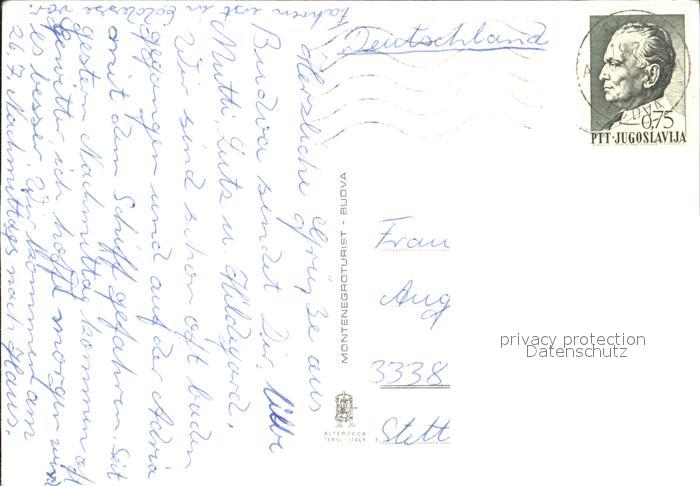 Herzliche Grüße aus
Budva sendet Dir, liebe
Mutti, Lutz u Hildegard.
Wir sind schon oft baden
gegangen und auf der Adria
mit dem Schiff gefahren. Seit
gestern Nachmittag kommen oft
Gewitter, ich hoffe morgen wird
es besser. Wir kommen am
26.7 Nachmittags nach Haus.
fahren erst in
Deutschland
0,75
PTT·JUGOSLAVIJA
MONTENEGROTURIST - BUDVA
Frau
Aug
3338
Stett
ALTEROCCA
TERNI ITALY
privacy protection
Datenschutz